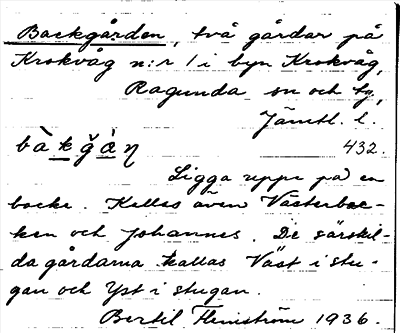 Backgården, två gårdar på
Krokvåg n:r 1 i byn Krokvåg,
Ragunda sn och tg,
Jämtl. l.
bàkgǎ̀n 432.
Ligga uppe på en
backe. Kallas även Västerbac-
ken och Johannes. De särskil-
da gårdarna kallas Väst i stu-
gan och Yst i stugan.
Bertil Flemström 1936.